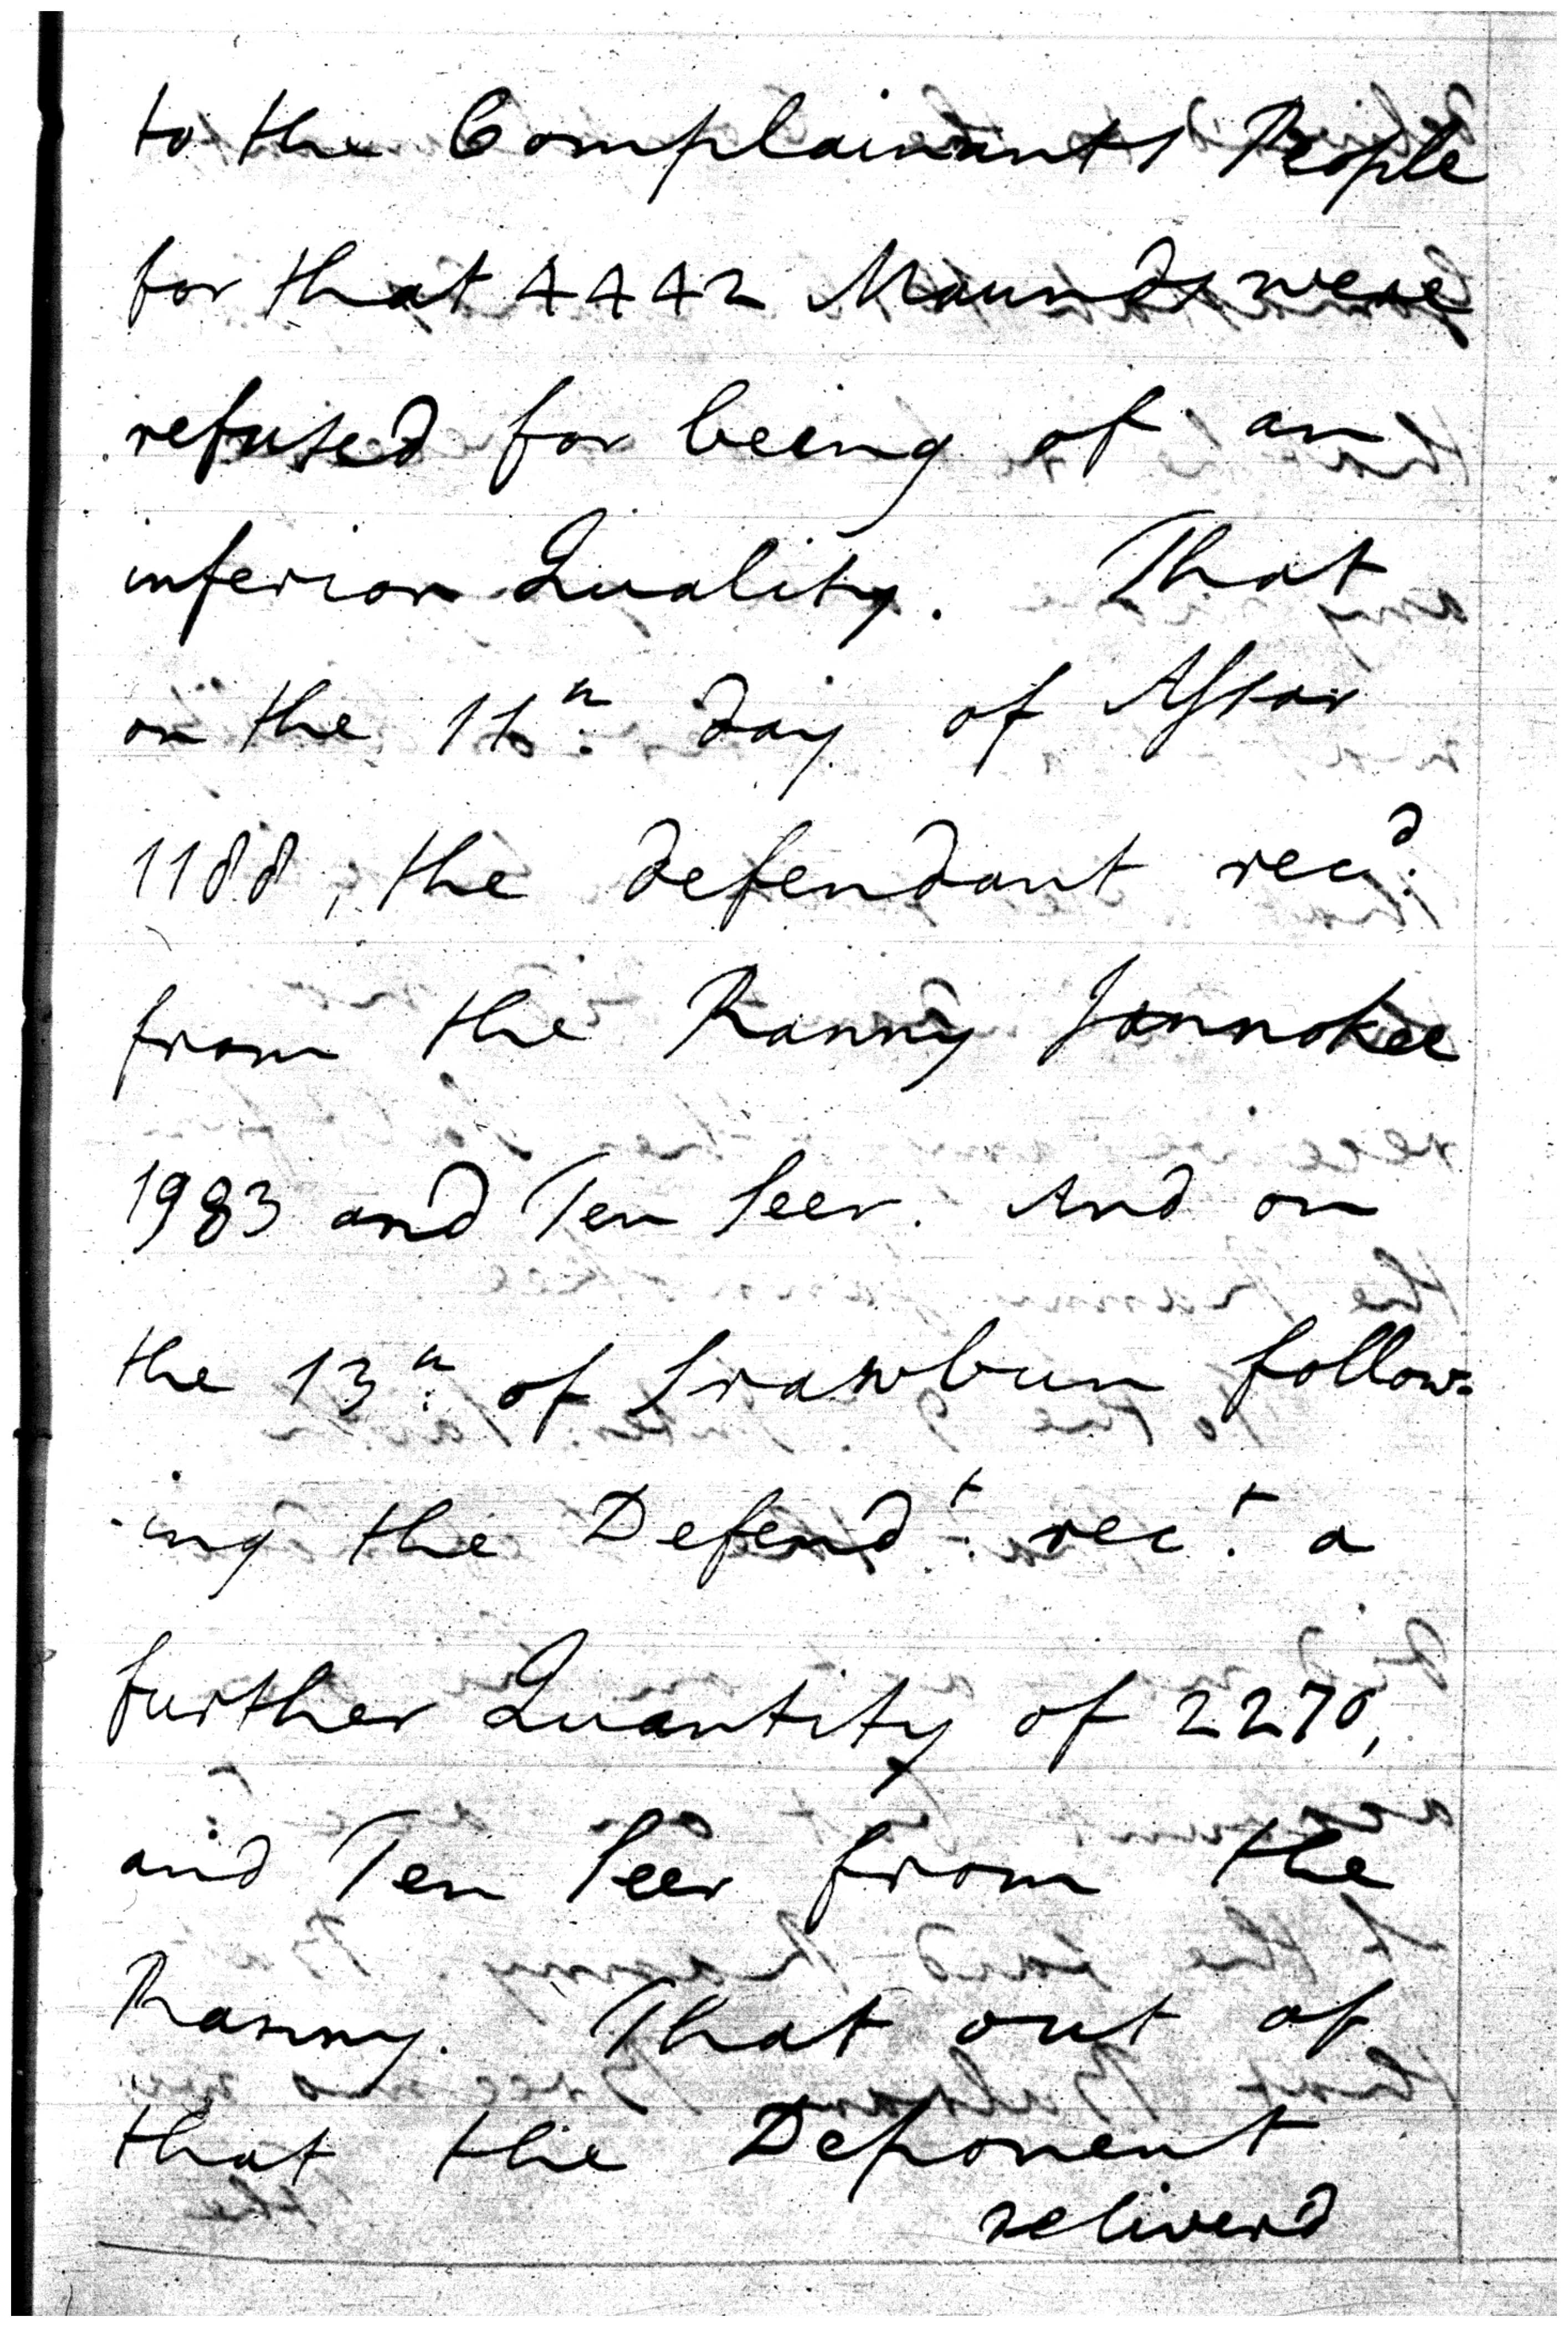 to the Complainants People
for that 4442 Maunds were
refused for being of an
inferior Quality. That
on the 11th day of Assar
1188, the defendant recd.
from the Ranny Jannokee
1983 and Ten Seer. And on
the 13th of Srawbun follow-
-ing the Defendt. rect. a
further Quantity of 2270,
and Ten Seer from the
Ranny. That out of
that the Deponent
deliverd